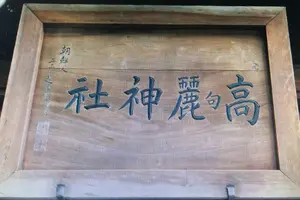 高句麗神社